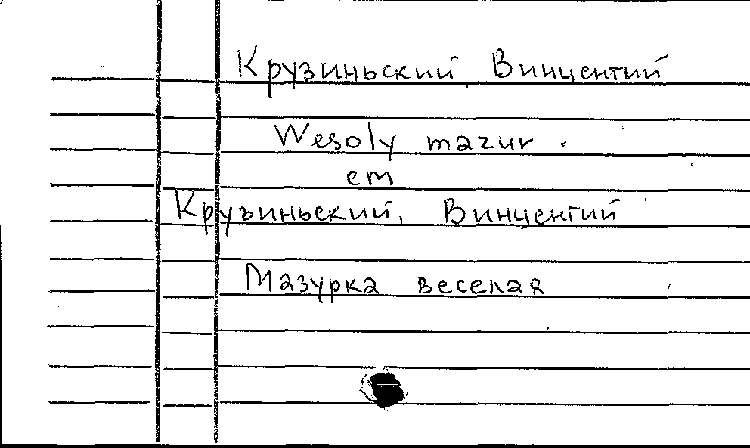 Крузиньский, Винцентий
Wesoly mazur.
см
Крузиньский, Винцентий
Мазурка веселая